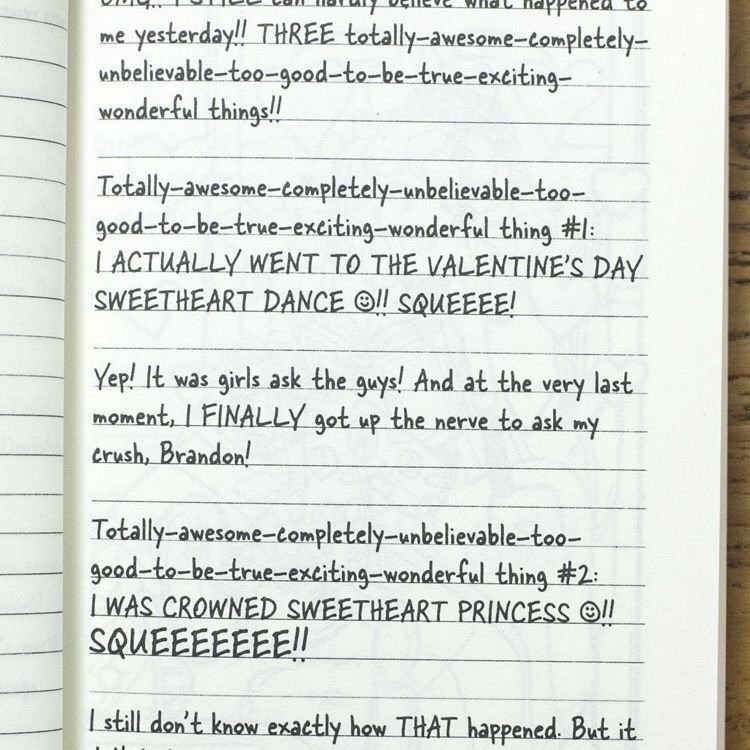 OMG!! I STILL can hardly believe what happened to
me yesterday!! THREE totally-awesome-completely-
unbelievable-too-good-to-be-true-exciting-
wonderful things!!
Totally-awesome-completely-unbelievable-too-
good-to-be-true-exciting-wonderful thing #1:
I ACTUALLY WENT TO THE VALENTINE'S DAY
SWEETHEART DANCE ☺!! SQUEEEE!
Yep! It was girls ask the guys! And at the very last
moment, I FINALLY got up the nerve to ask my
crush, Brandon!
Totally-awesome-completely-unbelievable-too-
good-to-be-true-exciting-wonderful thing #2:
I WAS CROWNED SWEETHEART PRINCESS ☺!!
SQUEEEEEEE!!
I still don't know exactly how THAT happened. But it